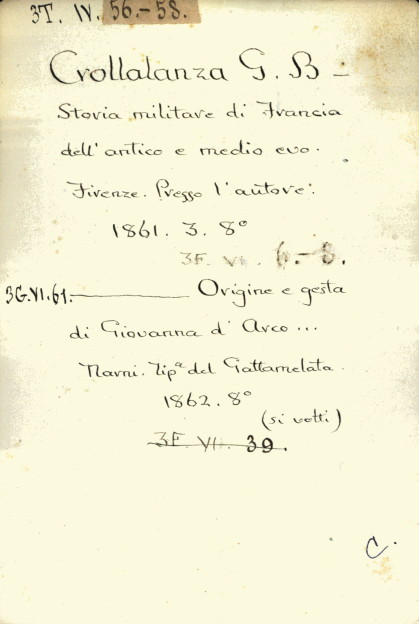 3T. IV. 56.-58.
Crollalanza G. B -
Storia militare di Francia
dell'antico e medio evo.
Firenze. Presso l'autore.
1861. 3. 8°
3F. VI. 6.-8.
3G.VI.61. ——— Origine e gesta
di Giovanna d'Arco...
Narni. Tipª del Gattamelata.
1862. 8°
(si volti)
3F. VI. 39.
C.